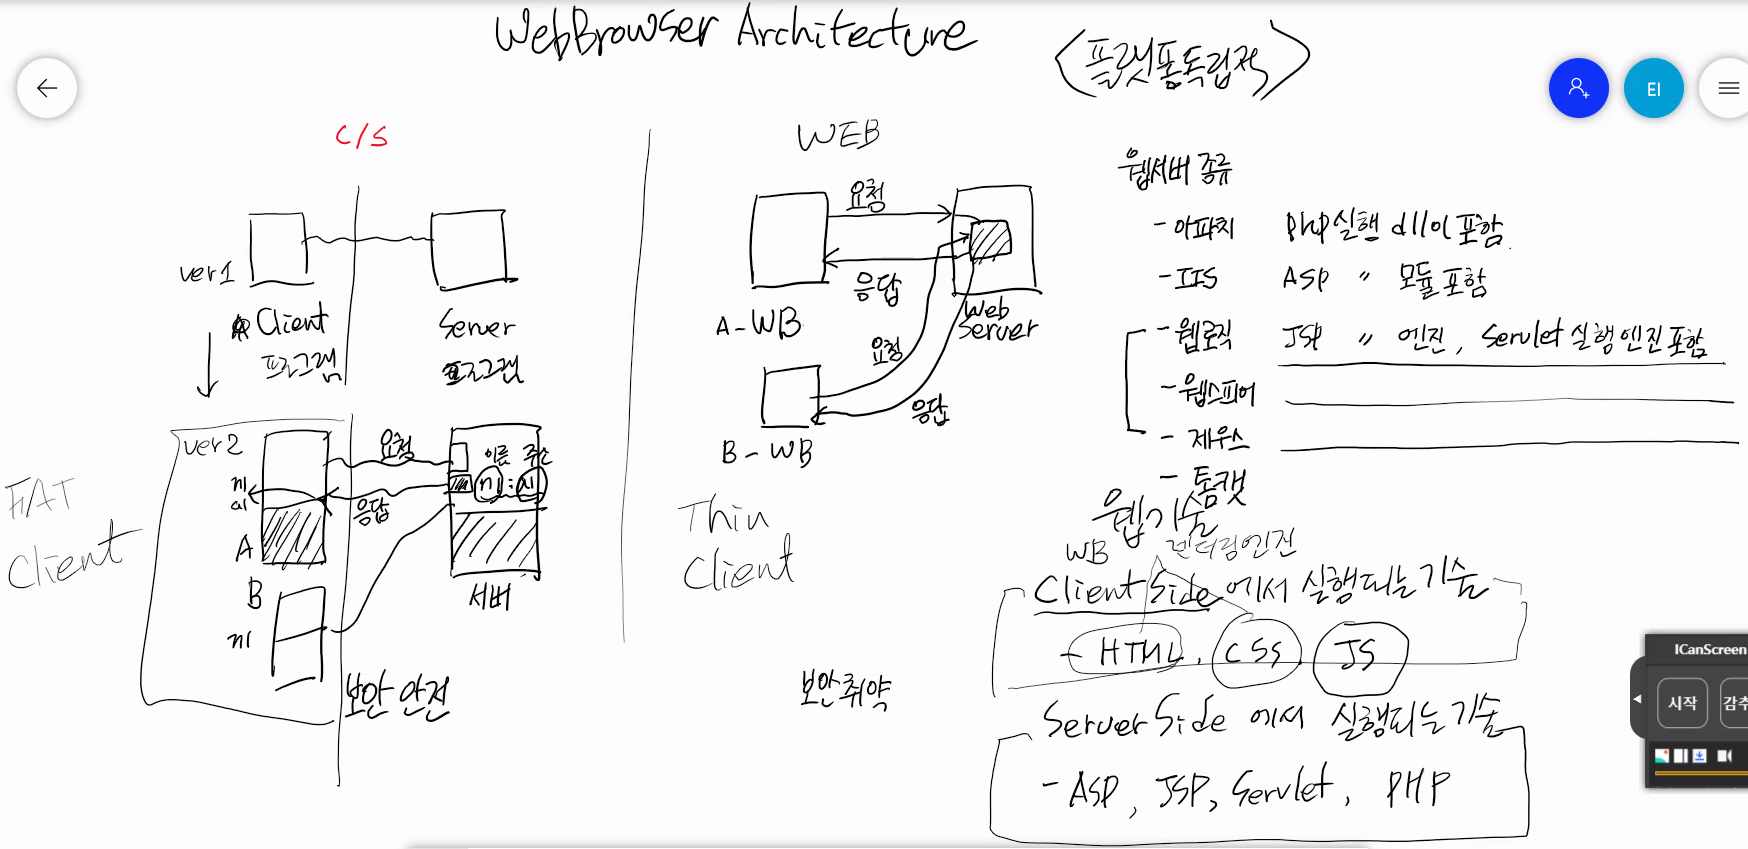 WebBrowser Architecture
<플랫폼독립적>
EI
C/S
ver1
A Client
프로그램
Server
프로그램
ver2
요청
이름 주소
응답
A
B
서버
FAT
Client
보안 안전
WEB
요청
응답
A-WB
Web
Server
요청
응답
B-WB
Thin
Client
보안취약
웹서버 종류
- 아파치 PHP실행 dll이 포함.
- IIS ASP 〃 모듈포함
- 웹로직 JSP 〃 엔진, Servlet실행엔진포함
- 웹스피어
- 제우스
- 톰캣
웹기술
WB 렌더링엔진
Client Side에서 실행되는기술
- HTML, CSS, JS
Server Side 에서 실행되는기술
- ASP, JSP, Servlet, PHP
ICanScreen
시작
감추